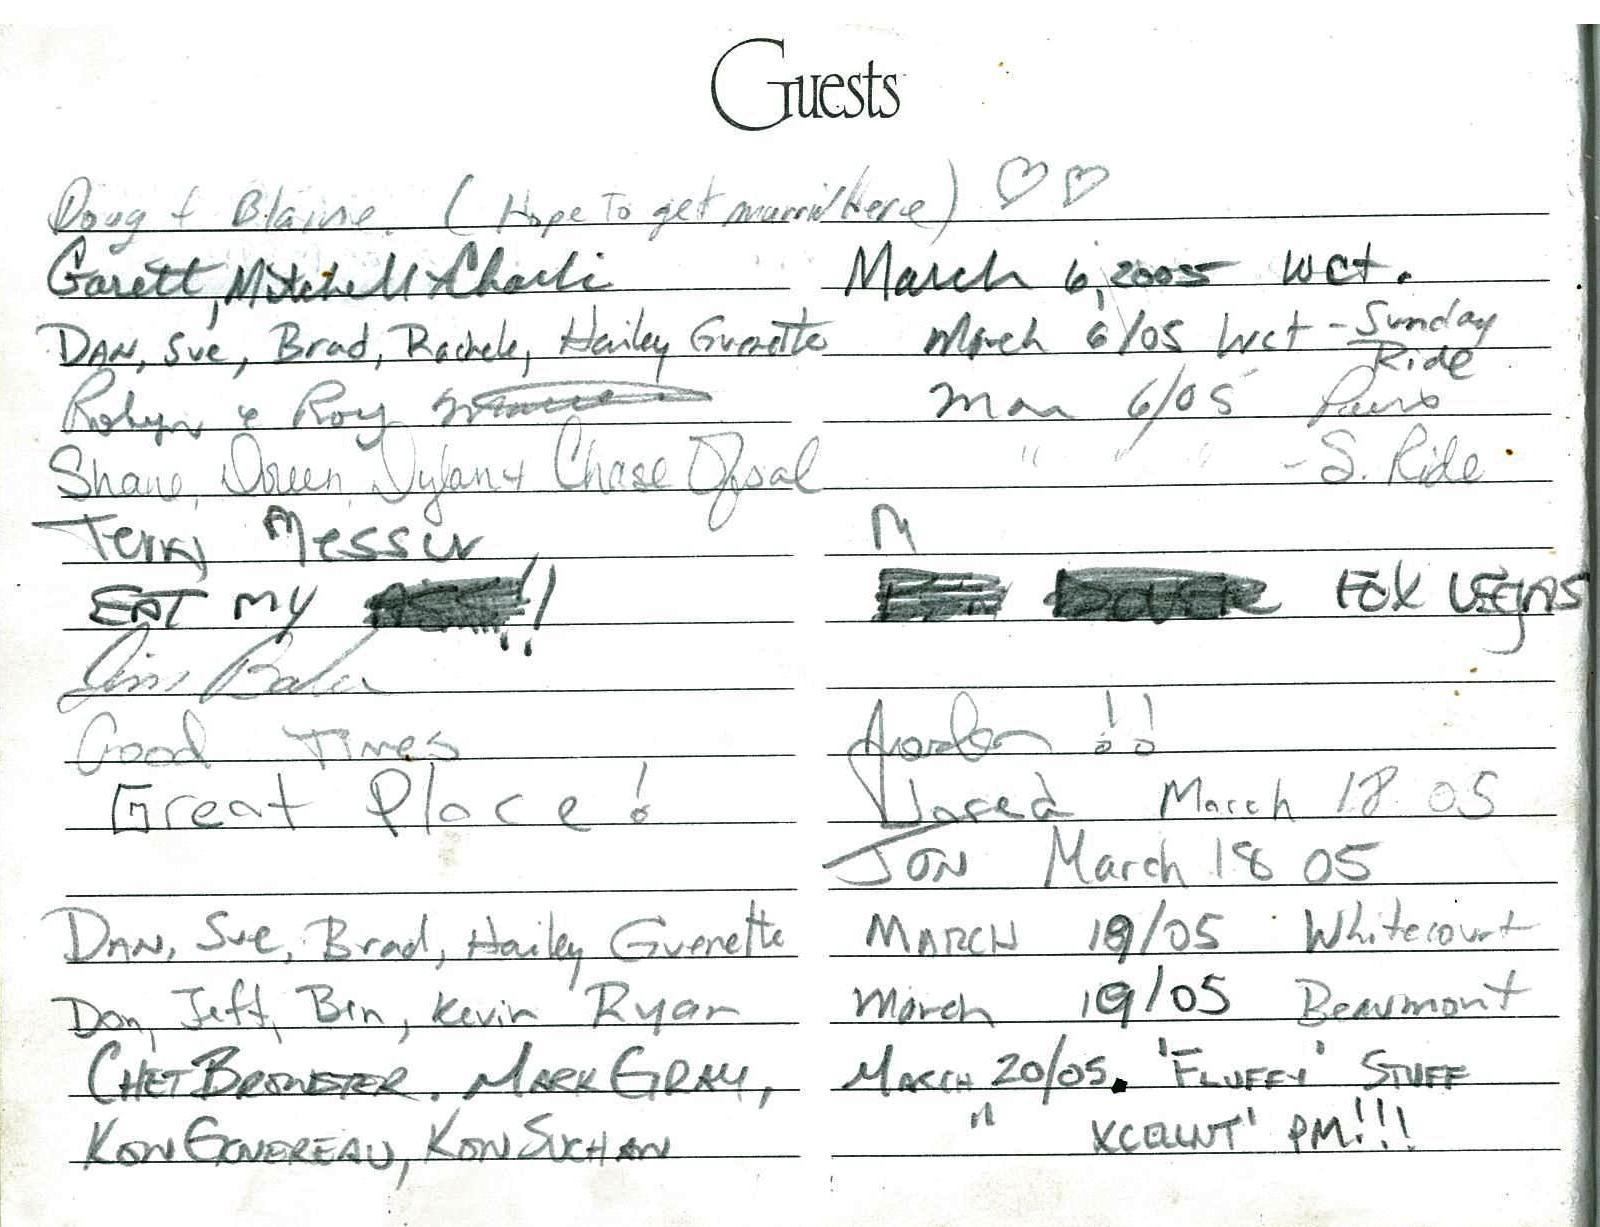 Guests
Doug & Blaine. (Hope To get married here) ♡♡
Garett, Mitchell & Charli March 6, 2005 WCT.
DAN, Sue, Brad, Rachele, Hailey Guenette March 6/05 Wct - Sunday Ride
Robyn & Roy Mar 6/05
Shane, Doreen, Dylan & Chase Opsal " " " - S. Ride
Terry Messier M
EAT MY !! FOX
Jim Baker
Good Times Jordan !!
Great Place! Jared March 18 05
JON March 18 05
DAN, Sue, Brad, Hailey Guenette MARCH 19/05 Whitecourt
Don, Jeff, Ben, Kevin Ryan March 19/05 Beaumont
CHET BREWSTER. MARK GRAY, MARCH 20/05. 'FLUFFY' STUFF
" PM!!!